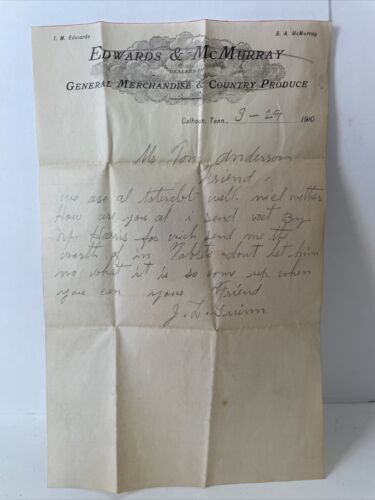 I. M. Edwards B. A. McMurray
EDWARDS & MCMURRAY
DEALERS IN
GENERAL MERCHANDISE & COUNTRY PRODUCE
Calhoun, Tenn., 3-29 190
Mr Tom Anderson
Friend,
we are al toterblt well.
How are you al i send by
Mr Harris for send me the
worth of in Tablets dont let him
no what it is so come up when
you can your Friend
J. L.